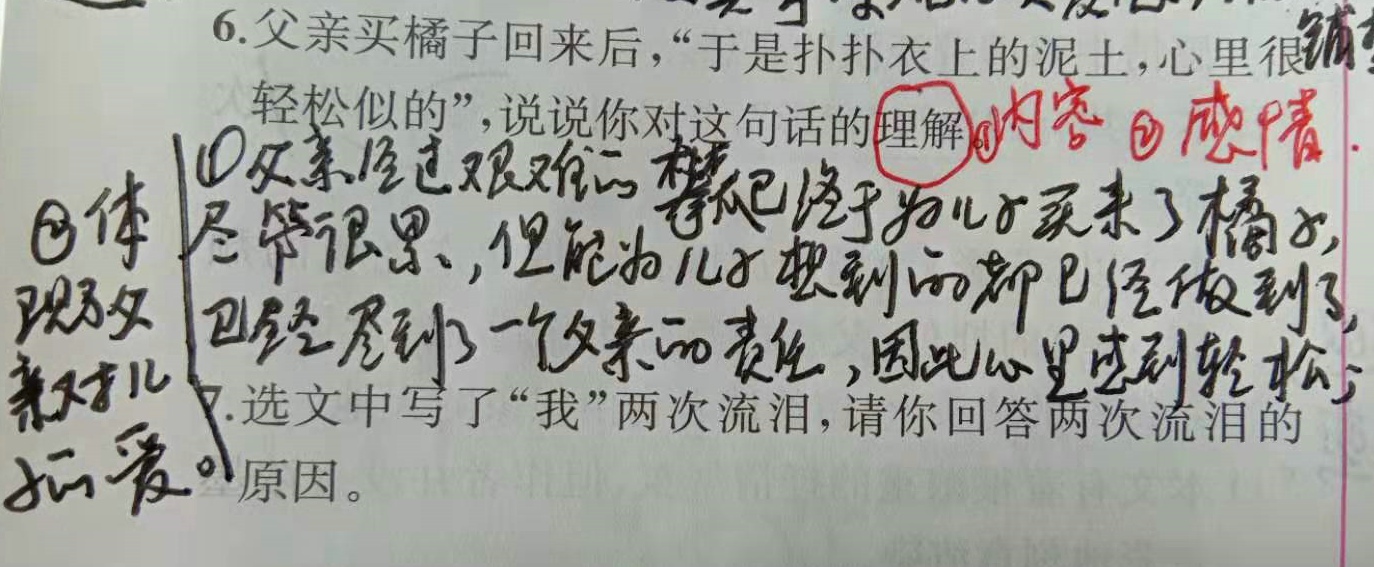 6.父亲买橘子回来后，“于是扑扑衣上的泥土，心里很
轻松似的”，说说你对这句话的理解。①内容 ②感情.
①父亲经过艰难的攀爬终于为儿子买来了橘子，
尽管很累，但能为儿子想到的都已经做到了，
已经尽到了一个父亲的责任，因此心里感到轻松；
②体
现了父
亲对儿
子的爱。
7.选文中写了“我”两次流泪，请你回答两次流泪的
原因。